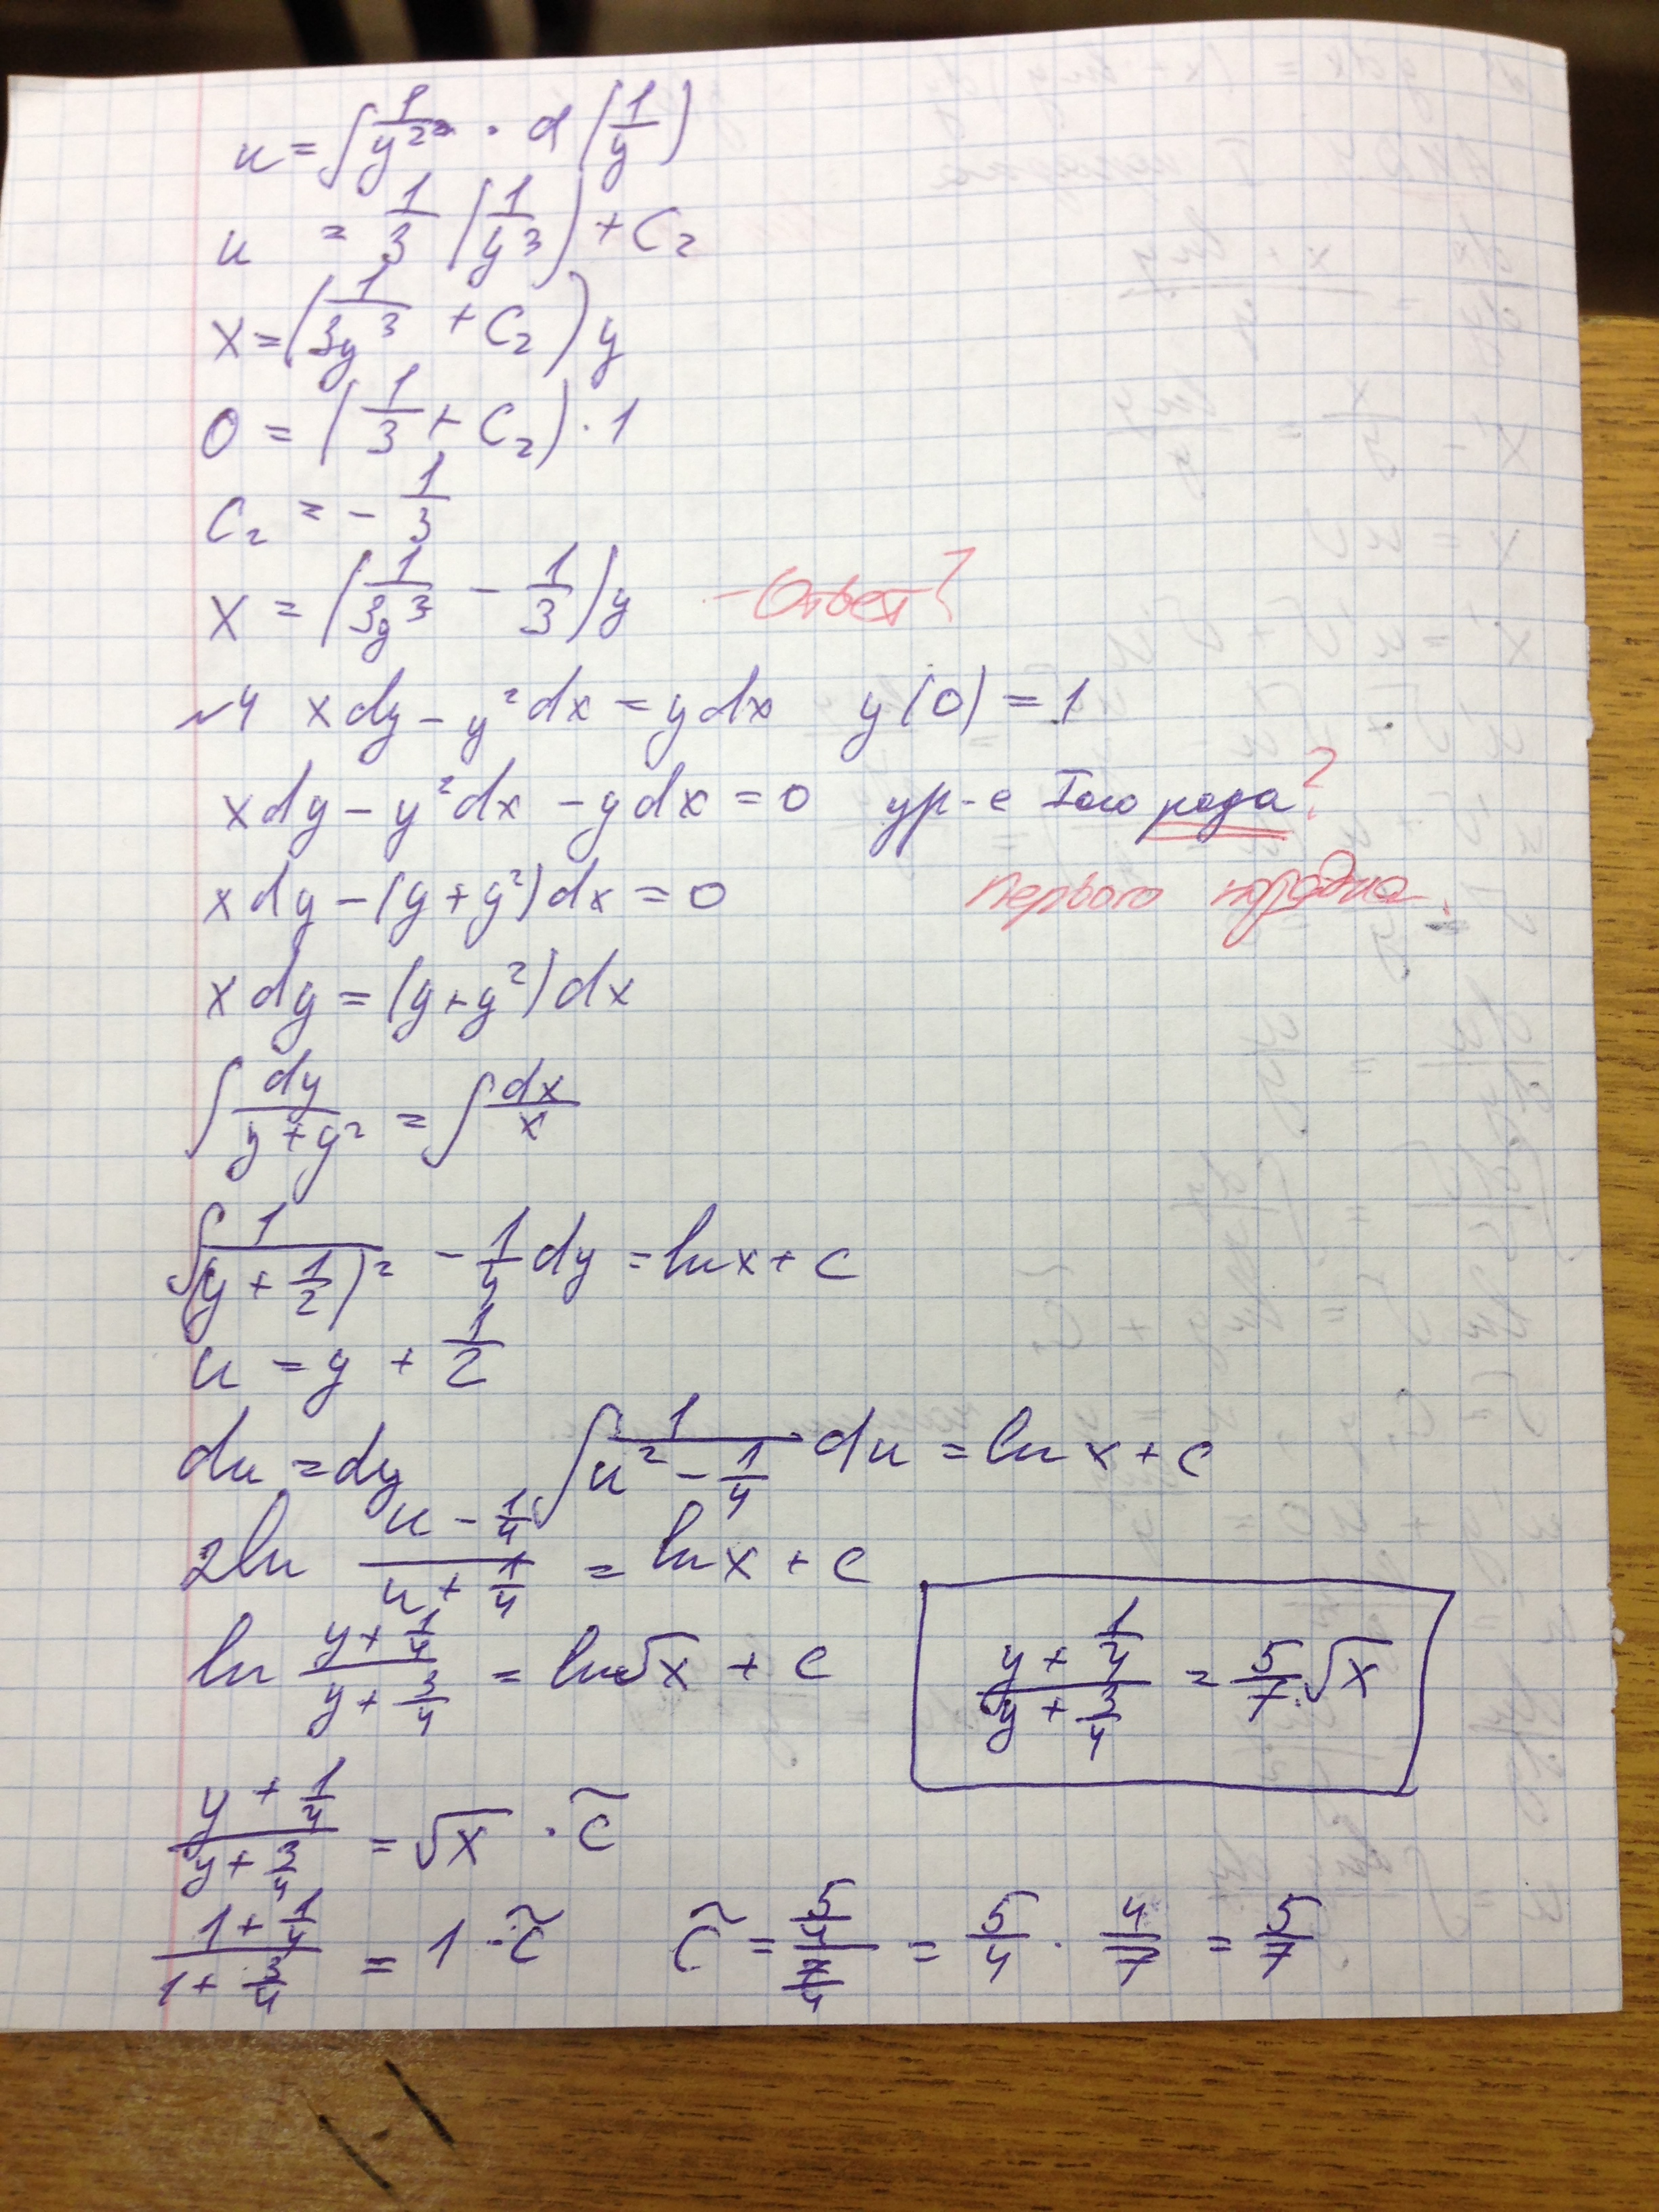 u = ∫ 1/y² · d(1/y)
u = 1/3 (1/y³) + C₂
x = (1/3y³ + C₂) y
0 = (1/3 + C₂) · 1
C₂ = - 1/3
x = (1/3y³ - 1/3) y - Ответ?
№4 xdy - y²dx = ydx y(0) = 1
xdy - y²dx - ydx = 0 ур-е Iого рода?
xdy - (y + y²)dx = 0 первого порядка.
xdy = (y + y²)dx
∫ dy/(y + y²) = ∫ dx/x
∫ 1/(y + 1/2)² - 1/4 dy = ln x + c
u = y + 1/2
du = dy ∫ 1/(u² - 1/4) du = ln x + c
2ln (u - 1/4)/(u + 1/4) = ln x + c
ln (y + 1/4)/(y + 3/4) = ln √x + c
(y + 1/4)/(y + 3/4) = 5/7 √x
(y + 1/4)/(y + 3/4) = √x · c̃
(1 + 1/4)/(1 + 3/4) = 1 · c̃ c̃ = (5/4)/(7/4) = 5/4 · 4/7 = 5/7